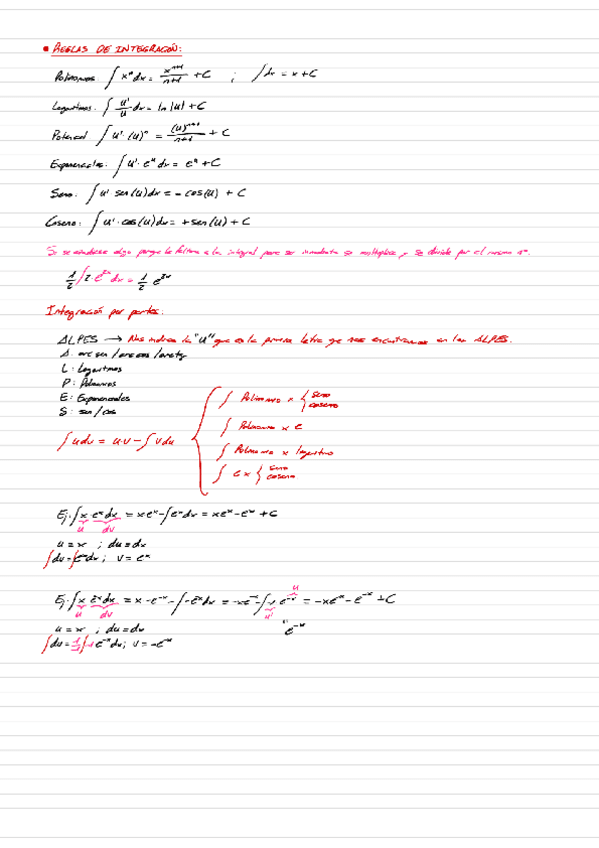 • REGLAS DE INTEGRACIÓN:
Polinomios: ∫ xⁿ dx = xⁿ⁺¹/n+1 + C ; ∫dx = x + C
Logaritmos: ∫ u'/u dx = ln|u| + C
Potencial ∫ u'·(u)ⁿ = (u)ⁿ⁺¹/n+1 + C
Exponenciales: ∫ u'·eᵘ dx = eᵘ + C
Seno: ∫ u' sen(u) dx = - cos(u) + C
Coseno: ∫ u'·cos(u) dx = + sen(u) + C
Si se algo porque le falta a la integral para ser inmediata se multiplica y se divide por el mismo nº.
1/2 ∫ 2·e²ˣ dx = 1/2 e²ˣ
Integración por partes:
ALPES → Nos indica la "u" que es la primera letra que nos encontramos en los ALPES.
A: arcsen / arccos / arctg
L: Logaritmos
P: Polinomios
E: Exponenciales
S: sen/cos
∫ u dv = u·v - ∫ v du
∫ Polinomio x { seno coseno
∫ Polinomio x e
∫ Polinomio x logaritmo
∫ e x { seno coseno
Ej: ∫ x eˣ dx = x eˣ - ∫ eˣ dx = x eˣ - eˣ + C
u dv
u = x ; du = dx
∫ dv = ∫ eˣ dx ; v = eˣ
u
Ej: ∫ x e⁻ˣ dx = x · -e⁻ˣ - ∫ -e⁻ˣ dx = -x e⁻ˣ - ∫ -1 e⁻ˣ = -x e⁻ˣ - e⁻ˣ + C
u dv u'
u = x ; du = dx
e⁻ˣ
∫ dv = 1/-1 ∫ -1 e⁻ˣ dx ; v = -e⁻ˣ